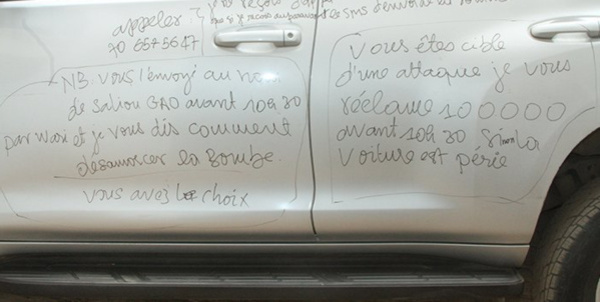 appeler
70
je reçois auparavant les SMS d'envoi de la
NB vous l'envoyi au nom
de Saliou avant 10h30
par Wari et je vous dis comment
désamorcer la Bombe.
vous avez le choix
Vous êtes cible
d'une attaque je vous
réclame 100000
avant 10h30 Sinon la
voiture est périe